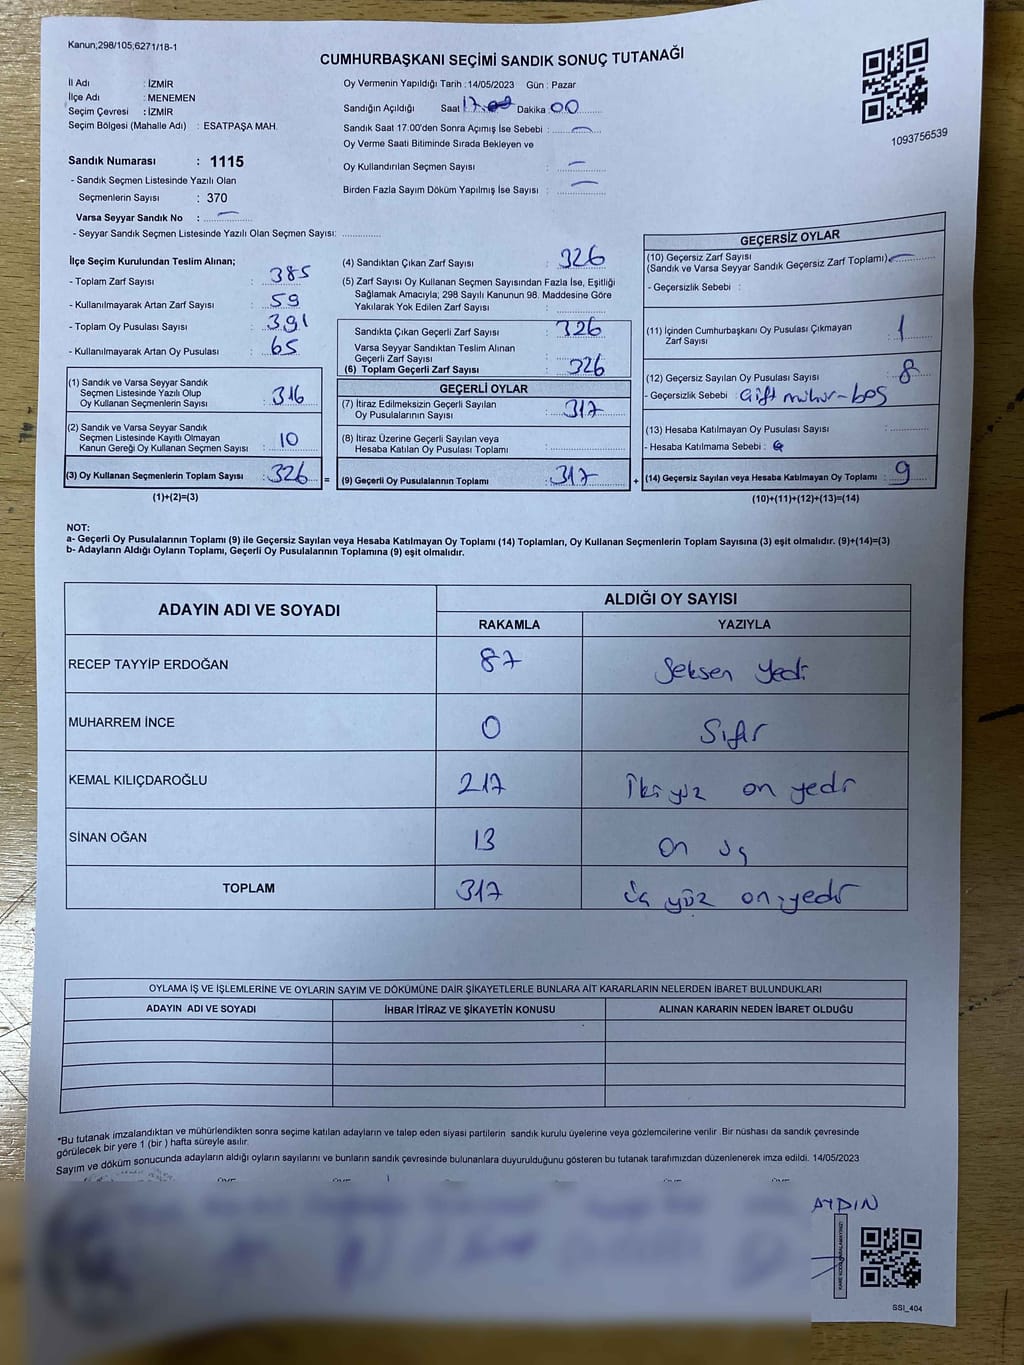 Kanun;298/105,6271/18-1
CUMHURBAŞKANI SEÇİMİ SANDIK SONUÇ TUTANAĞI
İl Adı : İZMİR
İlçe Adı : MENEMEN
Seçim Çevresi : İZMİR
Seçim Bölgesi (Mahalle Adı) : ESATPAŞA MAH.
Sandık Numarası : 1115
- Sandık Seçmen Listesinde Yazılı Olan
Seçmenlerin Sayısı : 370
Varsa Seyyar Sandık No : –
- Seyyar Sandık Seçmen Listesinde Yazılı Olan Seçmen Sayısı:
Oy Vermenin Yapıldığı Tarih : 14/05/2023 Gün : Pazar
Sandığın Açıldığı Saat 17.00 Dakika 00
Sandık Saat 17:00'den Sonra Açımış İse Sebebi : –
Oy Verme Saati Bitiminde Sırada Bekleyen ve
Oy Kullandırılan Seçmen Sayısı : –
Birden Fazla Sayım Döküm Yapılmış İse Sayısı : –
1093756539
İlçe Seçim Kurulundan Teslim Alınan;
- Toplam Zarf Sayısı : 385
- Kullanılmayarak Artan Zarf Sayısı : 59
- Toplam Oy Pusulası Sayısı : 391
- Kullanılmayarak Artan Oy Pusulası : 65
(1) Sandık ve Varsa Seyyar Sandık
Seçmen Listesinde Yazılı Olup
Oy Kullanan Seçmenlerin Sayısı : 316
(2) Sandık ve Varsa Seyyar Sandık
Seçmen Listesinde Kayıtlı Olmayan
Kanun Gereği Oy Kullanan Seçmen Sayısı : 10
(3) Oy Kullanan Seçmenlerin Toplam Sayısı : 326
(1)+(2)=(3)
(4) Sandıktan Çıkan Zarf Sayısı : 326
(5) Zarf Sayısı Oy Kullanan Seçmen Sayısından Fazla İse, Eşitliği
Sağlamak Amacıyla; 298 Sayılı Kanunun 98. Maddesine Göre
Yakılarak Yok Edilen Zarf Sayısı :
Sandıkta Çıkan Geçerli Zarf Sayısı : 326
Varsa Seyyar Sandıktan Teslim Alınan
Geçerli Zarf Sayısı :
(6) Toplam Geçerli Zarf Sayısı : 326
GEÇERLİ OYLAR
(7) İtiraz Edilmeksizin Geçerli Sayılan
Oy Pusulalarının Sayısı : 317
(8) İtiraz Üzerine Geçerli Sayılan veya
Hesaba Katılan Oy Pusulası Toplamı :
= (9) Geçerli Oy Pusulalarının Toplamı : 317
GEÇERSİZ OYLAR
(10) Geçersiz Zarf Sayısı
(Sandık ve Varsa Seyyar Sandık Geçersiz Zarf Toplamı) : –
- Geçersizlik Sebebi :
(11) İçinden Cumhurbaşkanı Oy Pusulası Çıkmayan
Zarf Sayısı : 1
(12) Geçersiz Sayılan Oy Pusulası Sayısı : 8
- Geçersizlik Sebebi : Çift mühür-boş
(13) Hesaba Katılmayan Oy Pusulası Sayısı :
- Hesaba Katılmama Sebebi :
+ (14) Geçersiz Sayılan veya Hesaba Katılmayan Oy Toplamı : 9
(10)+(11)+(12)+(13)=(14)
NOT:
a- Geçerli Oy Pusulalarının Toplamı (9) ile Geçersiz Sayılan veya Hesaba Katılmayan Oy Toplamı (14) Toplamları, Oy Kullanan Seçmenlerin Toplam Sayısına (3) eşit olmalıdır. (9)+(14)=(3)
b- Adayların Aldığı Oyların Toplamı, Geçerli Oy Pusulalarının Toplamına (9) eşit olmalıdır.
ADAYIN ADI VE SOYADI ALDIĞI OY SAYISI
RAKAMLA YAZIYLA
RECEP TAYYİP ERDOĞAN 87 Seksen Yedi
MUHARREM İNCE 0 Sıfır
KEMAL KILIÇDAROĞLU 217 İki yüz on yedi
SİNAN OĞAN 13 On üç
TOPLAM 317 üç yüz on yedi
OYLAMA İŞ VE İŞLEMLERİNE VE OYLARIN SAYIM VE DÖKÜMÜNE DAİR ŞİKAYETLERLE BUNLARA AİT KARARLARIN NELERDEN İBARET BULUNDUKLARI
ADAYIN ADI VE SOYADI İHBAR İTİRAZ VE ŞİKAYETİN KONUSU ALINAN KARARIN NEDEN İBARET OLDUĞU
*Bu tutanak imzalandıktan ve mühürlendikten sonra seçime katılan adayların ve talep eden siyasi partilerin sandık kurulu üyelerine veya gözlemcilerine verilir .Bir nüshası da sandık çevresinde
görülecek bir yere 1 (bir ) hafta süreyle asılır.
Sayım ve döküm sonucunda adayların aldığı oyların sayılarını ve bunların sandık çevresinde bulunanlara duyurulduğunu gösteren bu tutanak tarafımızdan düzenlenerek imza edildi. 14/05/2023
AYDIN
SSI_404